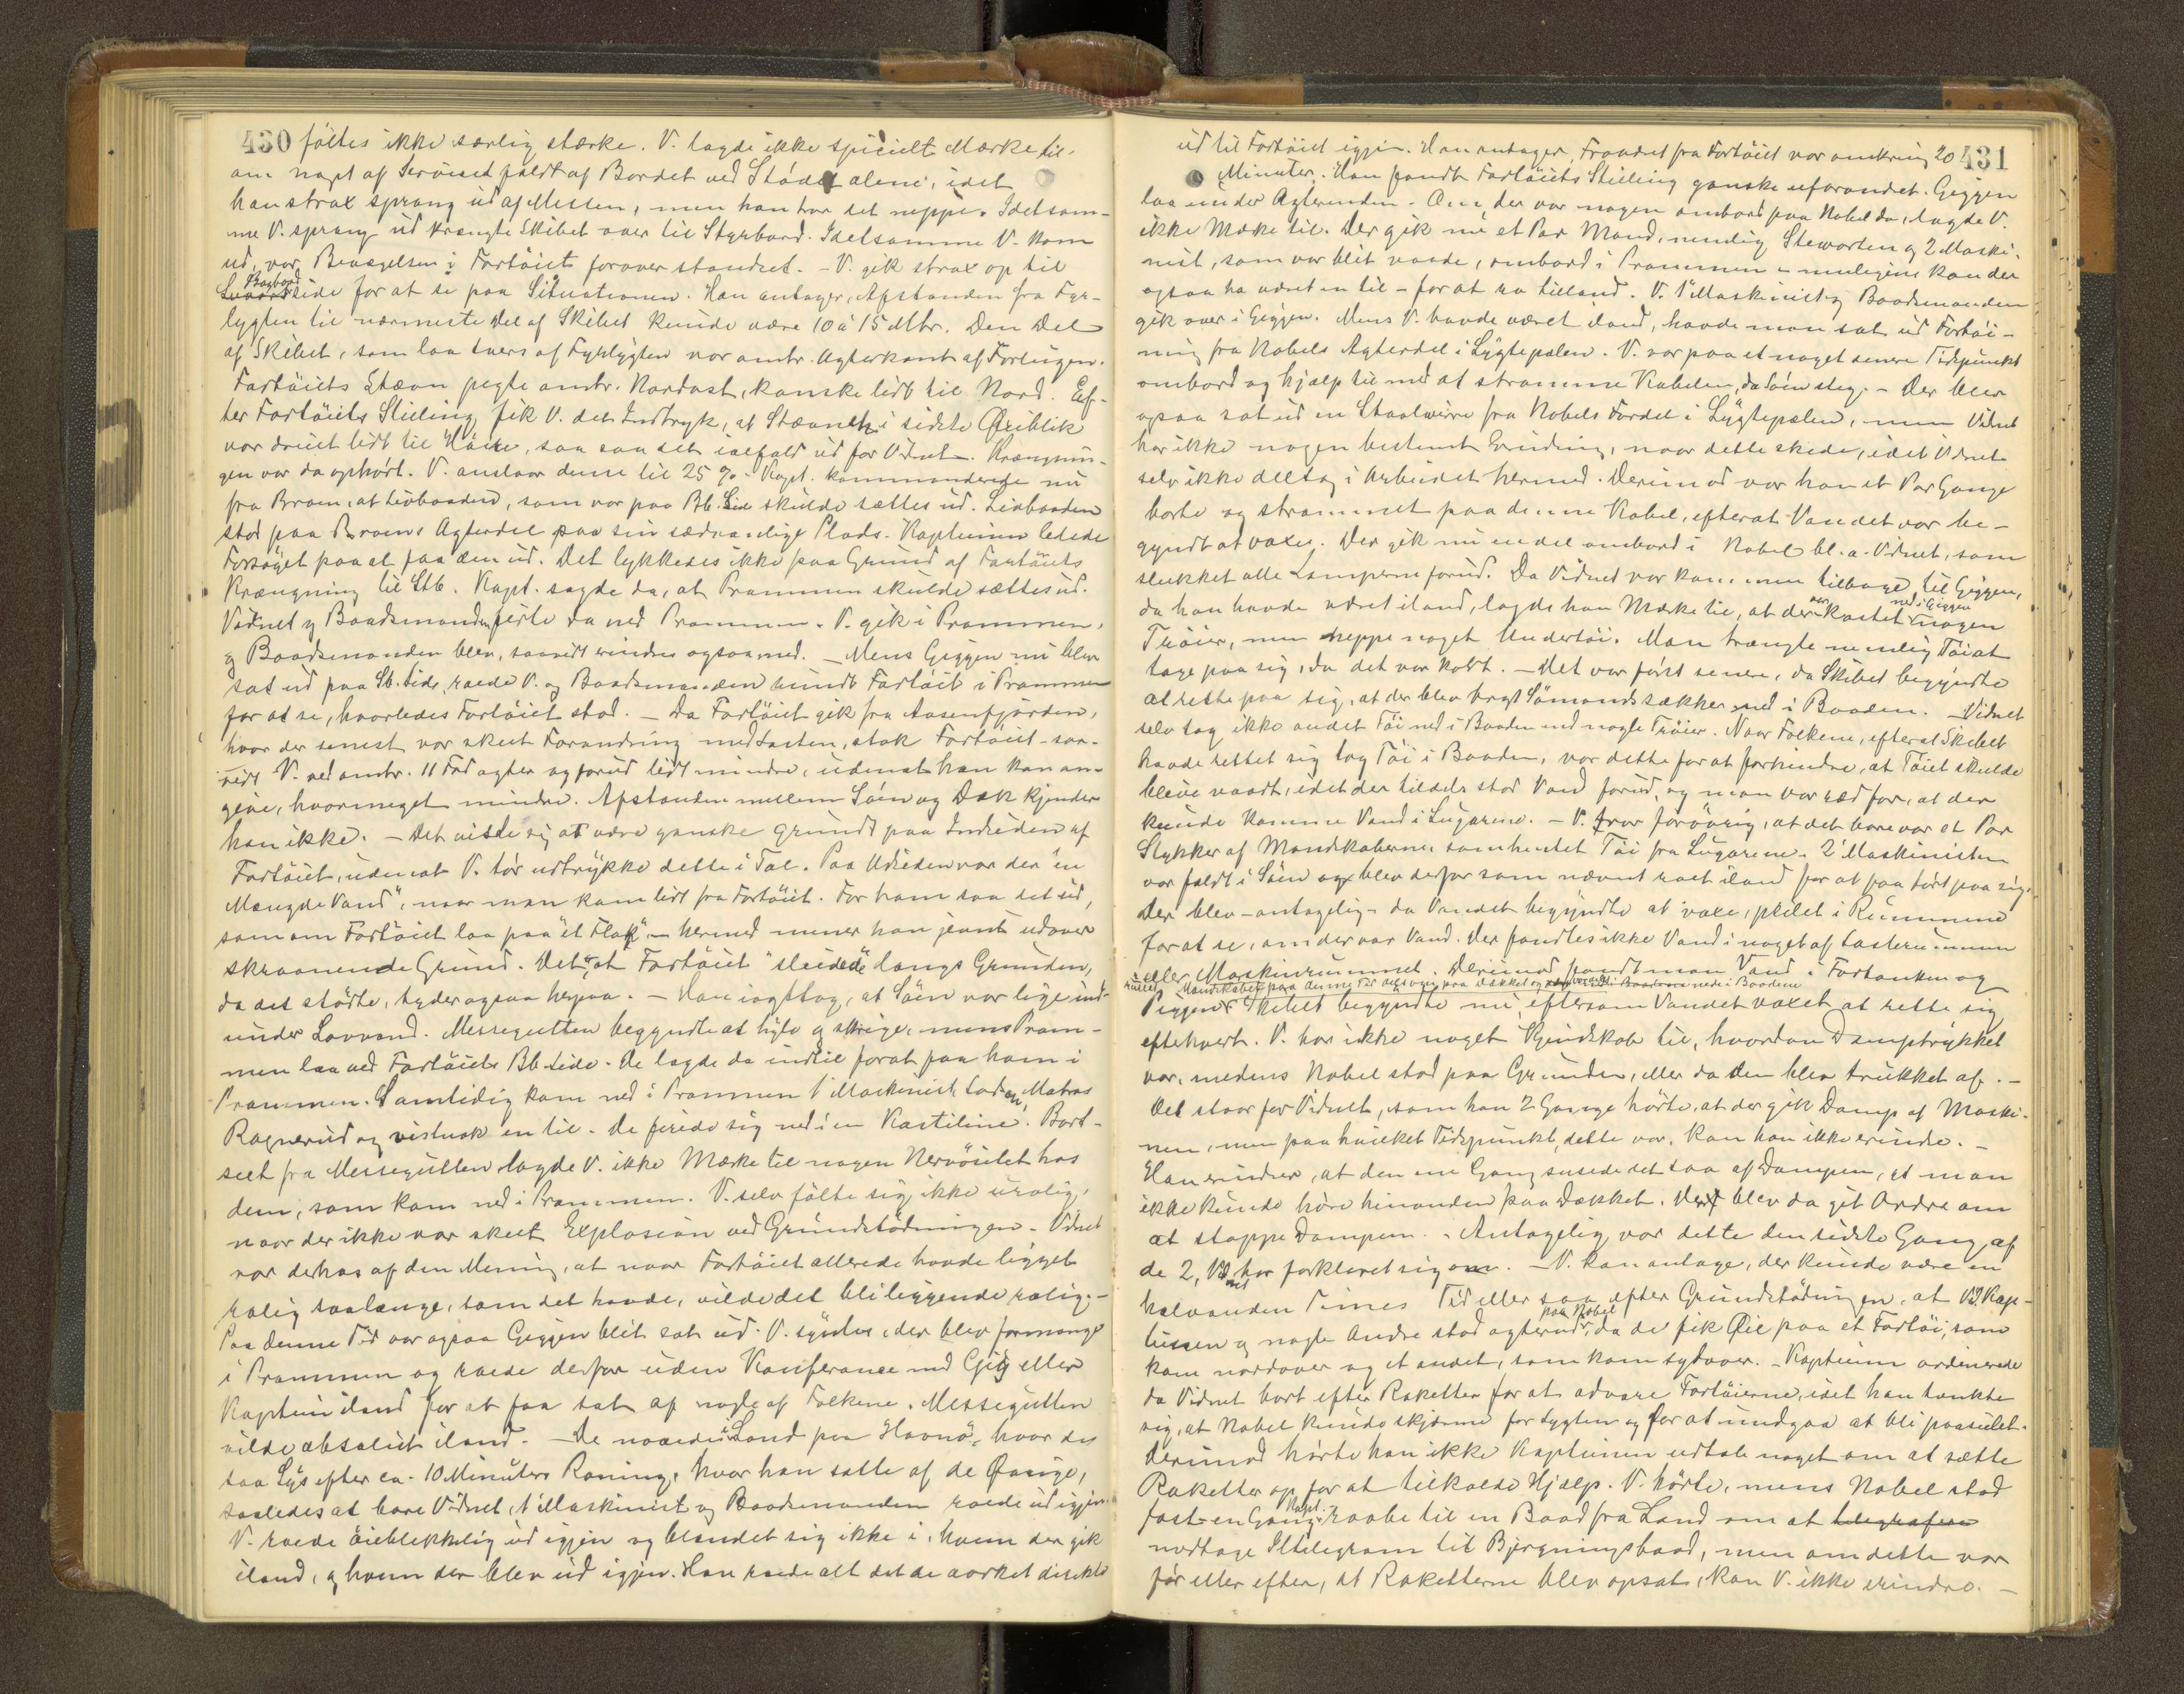 430 föltes ikke særlig stærke. V. lagde ikke specielt Mærke til,
om noget af Serviset faldt af Bordet ved Stödet alene, idet
han strax sprang ud af Messen, men han tror det neppe. Idetsam-
me V. sprang ud krængte Skibet over til Styrbord. Idetsamme V. kom
ud, var Bevægelsen i Fartöiet forover standset. – V. gik strax op til
Bagbord
side for at se paa Situationen. Han antager, Afstanden fra Fyr-
lygten til nærmeste Del af Skibet kunde være 10 à 15 Mtr. Den Del
af Skibet, som laa tvers af Fyrlygten var omtr. Agterkant af Forlugen.
Fartöiets Stævn pegte omtr. Nordost, kanske lidt til Nord. Ef-
ter Fartöiets Stilling fik V. det Indtryk, at Stævnen i sidste Öieblik
var dreiet lidt til Höire, saa saa det ialfald ud for Vidnet. Krængnin-
gen var da ophört. V. anslaar denne til 25 %. Kapt. kommanderede nu
fra Broen, at Livbaaden, som var paa Bb. Side skulde sættes ud. Livbaaden
stod paa Broens Agterdel paa sin sædvanlige Plads. Kapteinen ledede
Forsöget paa at faa den ud. Det lykkedes ikke paa Grund af Fartöiets
Krængning til Stb. Kapt. sagde da, at Prammen skulde sættes ud.
Vidnet og Baadsmanden firte da ned Prammen. V. gik i Prammen,
og Baadsmanden blev, saavidt erindres ogsaa med. – Mens Giggen nu blev
sat ud paa Sb. Side, roede V. og Baadsmanden rundt Fartöiet i Prammen
for at se, hvorledes Fartöiet stod. – Da Fartöiet gik fra Aasenfjorden,
hvor der senest var skeet Forandring med Lasten, stak Fartöiet – saa-
vidt V. ved omtr. 11 Fod agter og forud lidt mindre, uden at han kan an-
give, hvormeget mindre. Afstanden mellem Söen og Dæk kjender
han ikke. – Det viste sig at være ganske grundt paa Indsiden af
Fartöiet, uden at V. tör udtrykke dette i Tal. Paa Udsiden var der "en
Mængde Vand", naar man kom lidt fra Fartöiet. For ham saa det ud,
som om Fartöiet laa paa "et Flak" – hermed mener han jevnt udover
skraanende Grund. Det, at Fartöiet "sleidede" langs Grunden,
da det stötte, tyder ogsaa herpaa. – Han iagttog, at Söen var lige ind-
under Lavvand. Messegutten begyndte at hyle og skrige, mens Pram-
men laa ved Fartöiets Bb side. De lagde da indtil for at faa ham i
Prammen. Samtidig kom ned i Prammen 1' Maskinist, Lodsen, Matros
Ragnerud og vistnok en til. De firede sig ned i en Kasteline. Bort-
seet fra Messegutten lagde V. ikke Mærke til nogen Nervösitet hos
dem, som kom ned i Prammen. V. selv fölte sig ikke urolig,
naar der ikke var skeet Explosion ved Grundstödningen. Vidnet
var derhos af den Mening, at naar Fartöiet allerede havde ligget
rolig saalænge, som det havde, vilde det bli liggende rolig. –
Paa denne Tid var ogsaa Giggen blit sat ud. V. syntes, der blev formange
i Prammen og roede derfor uden Konferance med Gig eller
Kaptein iland for at faa sat af nogle af Folkene. Messegutten
vilde absolut iland. – De naaede i Land paa "Havnö", hvor de
saa Lys efter ca. 10 Minuters Roning, hvor han satte af de Övrige,
saaledes at bare Vidnet, 1' Maskinist og Baadsmanden roede ud igjen.
V. roede öieblikkelig ud igjen og blandet sig ikke i, hvem der gik
iland, og hvem der blev ud igjen. Han roede alt det de orket direkte
431
ud til Fartöiet igjen. Han antager, Fraværet fra Fartöiet var omkring 20
Minuter. Han fandt Fartöiets Stilling ganske uforandret. Giggen
laa under Agterenden. Om der var nogen ombord paa Nobel da, lagde V.
ikke Mærke til. Der gik nu et Par Mand, nemlig Stewarten og 2 Maski-
nist, som var blit vaade, ombord i Prammen – muligens kan der
ogsaa ha været en til – for at ro tilland. V. 1' Maskinist og Baadsmanden
gik over i Giggen. Mens V. havde været iland, havde man sat ud Fortöi-
ning fra Nobels Agterdel i Lygtepælen. V. var paa et noget senere Tidspunkt
ombord og hjalp til med at stramme Kabelen, da Söen steg. – Der blev
ogsaa sat ud en Staalwire fra Nobels Fordel i Lygtepælen, men Vidnet
har ikke nogen bestemt Erindring, naar dette skede, idet Vidnet
selv ikke deltog i Arbeidet hermed. Derimod var han et Par Gange
borte og strammet paa denne Kabel, efterat Vandet var be-
gyndt at voxe. Der gik nu en del ombord i Nobel bl. a. Vidnet, som
slukket alle Lamperne forud. Da Vidnet var kommen tilbage til Giggen,
da han havde været iland, lagde han Mærke til, at der var kastet ned i Giggen nogen
Tröier, men neppe noget Undertöi. Man trængte nemlig Töi at
tage paa sig, da det var koldt. – Det var först senere, da Skibet begyndte
at rette paa sig, at der blev bragt Sömandssækker ned i Baaden. – Vidnet
selv tog ikke andet Töi ned i Baaden end nogle Tröier. Naar Folkene, efterat Skibet
havde rettet sig tog Töi i Baaden, var dette for at forhindre, at Töiet skulde
bleve vaadt, idet der tildels stod Vand forud, og man var ræd for, at der
kunde komme Vand i Lugarene. – V. tror forövrig, at det bare var et Par
Stykker af Mandskaberne, som hentet Töi fra Lugarene. 2' Maskinisten
var faldt i Söen og blev derfor som nævnt roet iland for at faa tört paa sig.
Der blev – antagelig – da Vandet begyndte at voxe, peilet i Rummene
for at se, om der var Vand. Der fandtes ikke Vand i noget af Lasterummene
eller Maskinrummet. Derimod fandt man Vand i Fortanken og
Mandskabet paa denne Tid dels oppe paa Dækket og nede i Baadene
Piggen. Skibet begyndte nu, eftersom Vandet voxet, at rette sig
efterhvert. V. har ikke noget Kjendskab til, hvordan Damptrykket
var, medens Nobel stod paa Grunden, eller da den blev trukket af. –
Det staar for Vidnet, som han 2 Gange hörte, at der gik Damp af Maski-
nen, men paa hvilket Tidspunkt, dette var, kan han ikke erindre. –
Han erindrer, at den ene Gang susede det saa af Dampen, at man
ikke kunde höre hinanden paa Dækket. Der blev da git Ordre om
at stoppe Dampen. – Antagelig var dette den sidste Gang af
de 2, Vidnet har forklaret sig om. – V. kan antage, der kunde være en
halvanden Times Tid eller saa efter Grundstödningen, at V., Kap-
teinen og nogle Andre stod agterud paa Nobel, da de fik Öie paa et Fartöi, som
kom nordover og et andet, som kom sydover. – Kapteinen ordinerede
da Vidnet bort efter Raketter for at advare Fartöierne, idet han tænkte
sig, at Nobel kunde skjærme for Lygten og for at undgaa at bli paaseilet.
Derimod hörte han ikke Kapteinen udtale noget om at sætte
Raketter op for at tilkalde Hjælp. V. hörte, mens Nobel stod
fast en Gang Kapt. raabe til en Baad fra Land om at telegrafere
modtage Iltelegram til Bjergningsbaad, men om dette var
för eller efter, at Raketterne blev opsat, kan V. ikke erindre. –